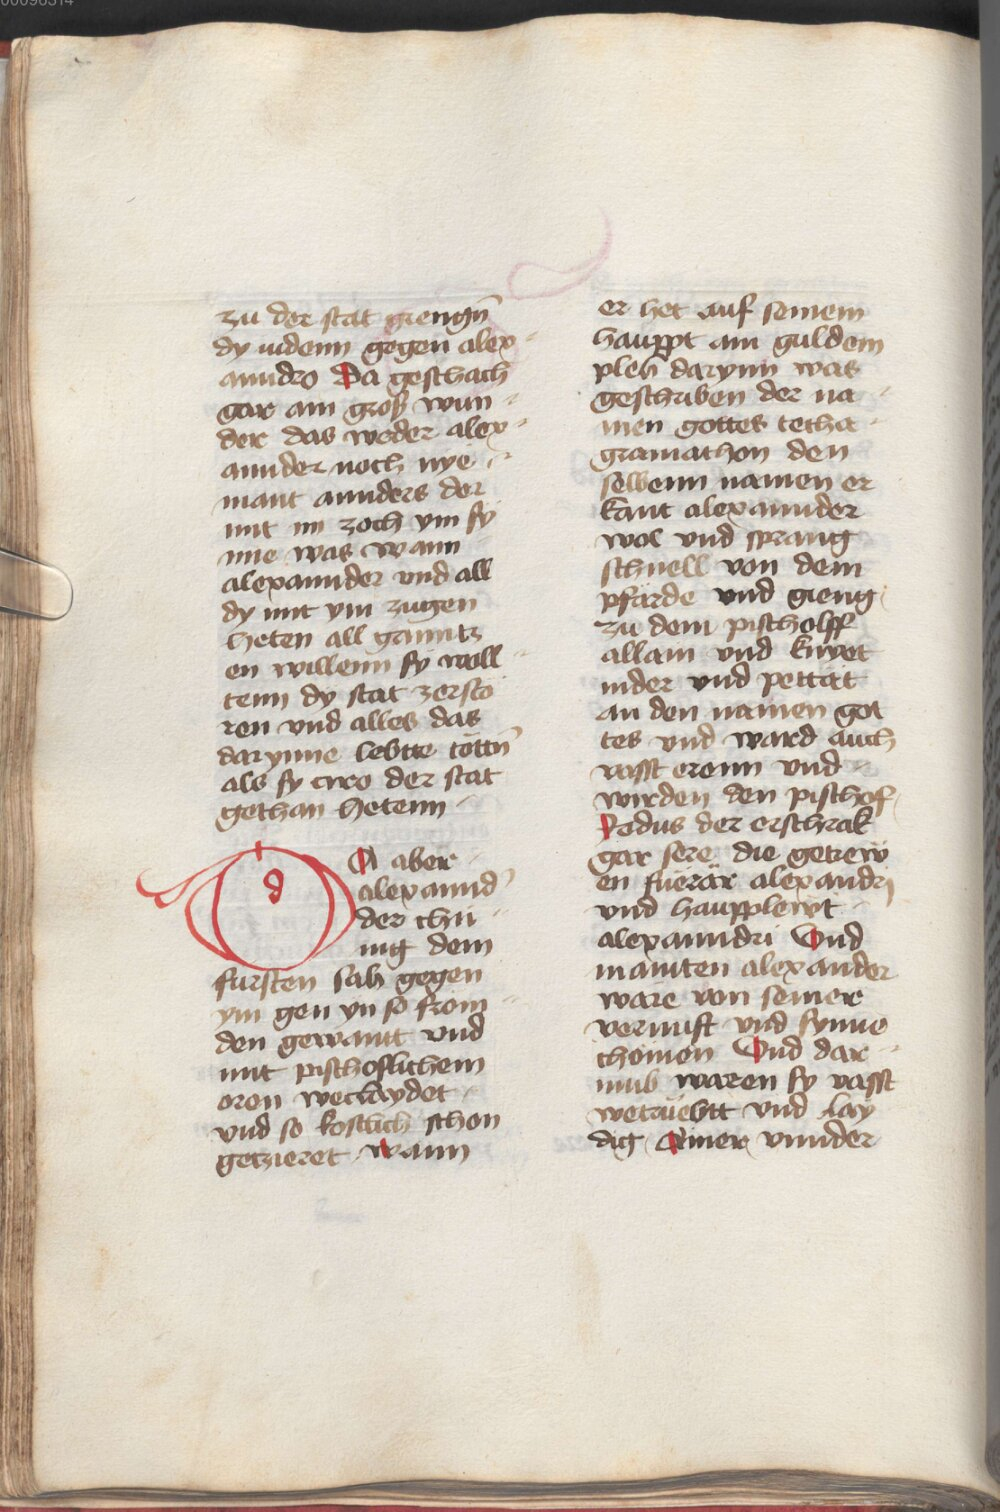 zu der stat giengñ
dy iudenn gegen alex
anndro Da geschach
gar ain groß wun
der das weder alex
annder noch nye
mant annders der
mit im zoch vm sy
nne was wann
alexannder vnd all
dy mit ym zugen
heten all ganntz
en willenn sy woll
tenn dy stat zersto
ren vnd alles das
darynne lebtte töttñ
als sy tyro der stat
gethan hetenn
DA aber
alexannd
der chu
nig dem
fursten sah gegen
ym gen yn so from
den gewannt vnd
mit pischoflichem
eren wechlaydet
vnd so kostlich schon
getzieret wann
er het auf seinem
hauppt ain guldein
pleh darynn was
geschriben der na
men gottes tetha
gramathon den
selbenn namen er
kant alexannder
wol vnd sprang
schnell von dem
pfärde vnd gieng
zu dem pischolff
allain vnd knyet
nider vnd pettät
an den namen got
tes vnd ward auch
vasst erenn vnd
wirden den pischof
Dedus der erschrak
gar sere die getrew
en fuerär alexandri
vnd haupplewt
alexanndri Vnd
mainten alexander
ware von seiner
vernuft vnd synne
chömen Vnd dar
umb waren sy vasst
wetrüebtt vnd lay
dig Ainer vnnder